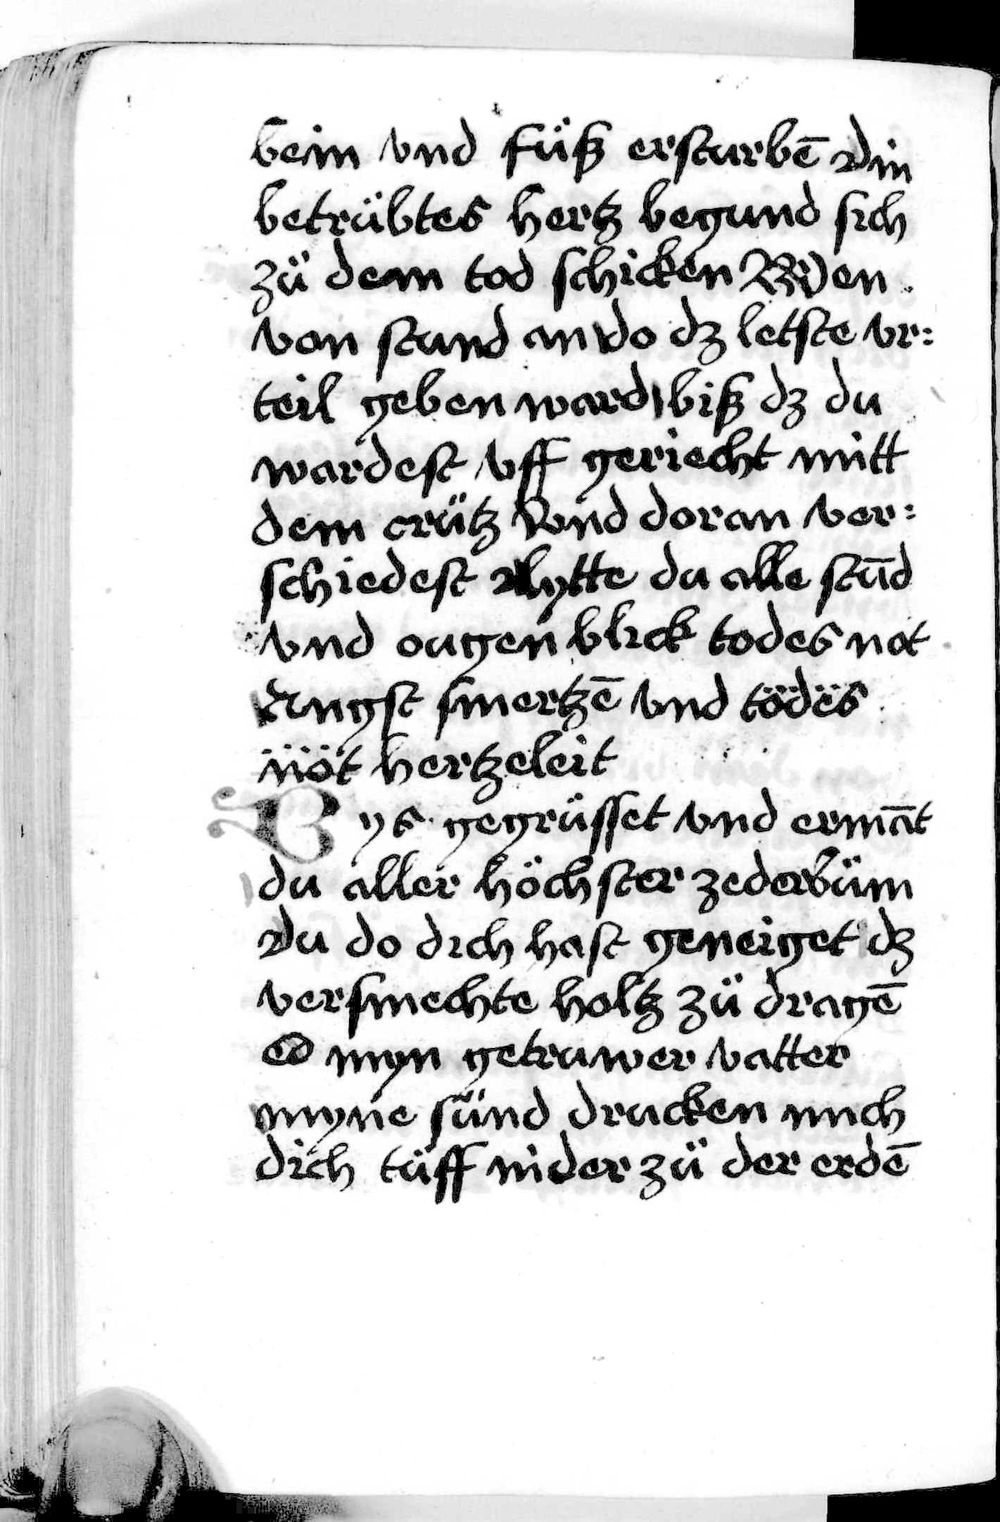 bein vnd füß ersturbē Din
betrübtes hertz begund sich
zü dem tod schicken Wen
von stund an do dz letste vr:
teil geben ward biß dz du
wardest vff geriecht mitt
dem crütz Vnd doran ver:
schiedest lytte du alle stūd
vnd ougen blick todes not
Angst smertzē vnd tödes
nöt hertzeleit
Bys gegrüsset vnd ermāt
du aller höchster zederbüm
Du do dich hast geneiget dz
versmechte holtz zü dragē
O myn getruwer vatter
myne sünd drucken mich
dich tüff nider zü der erdē